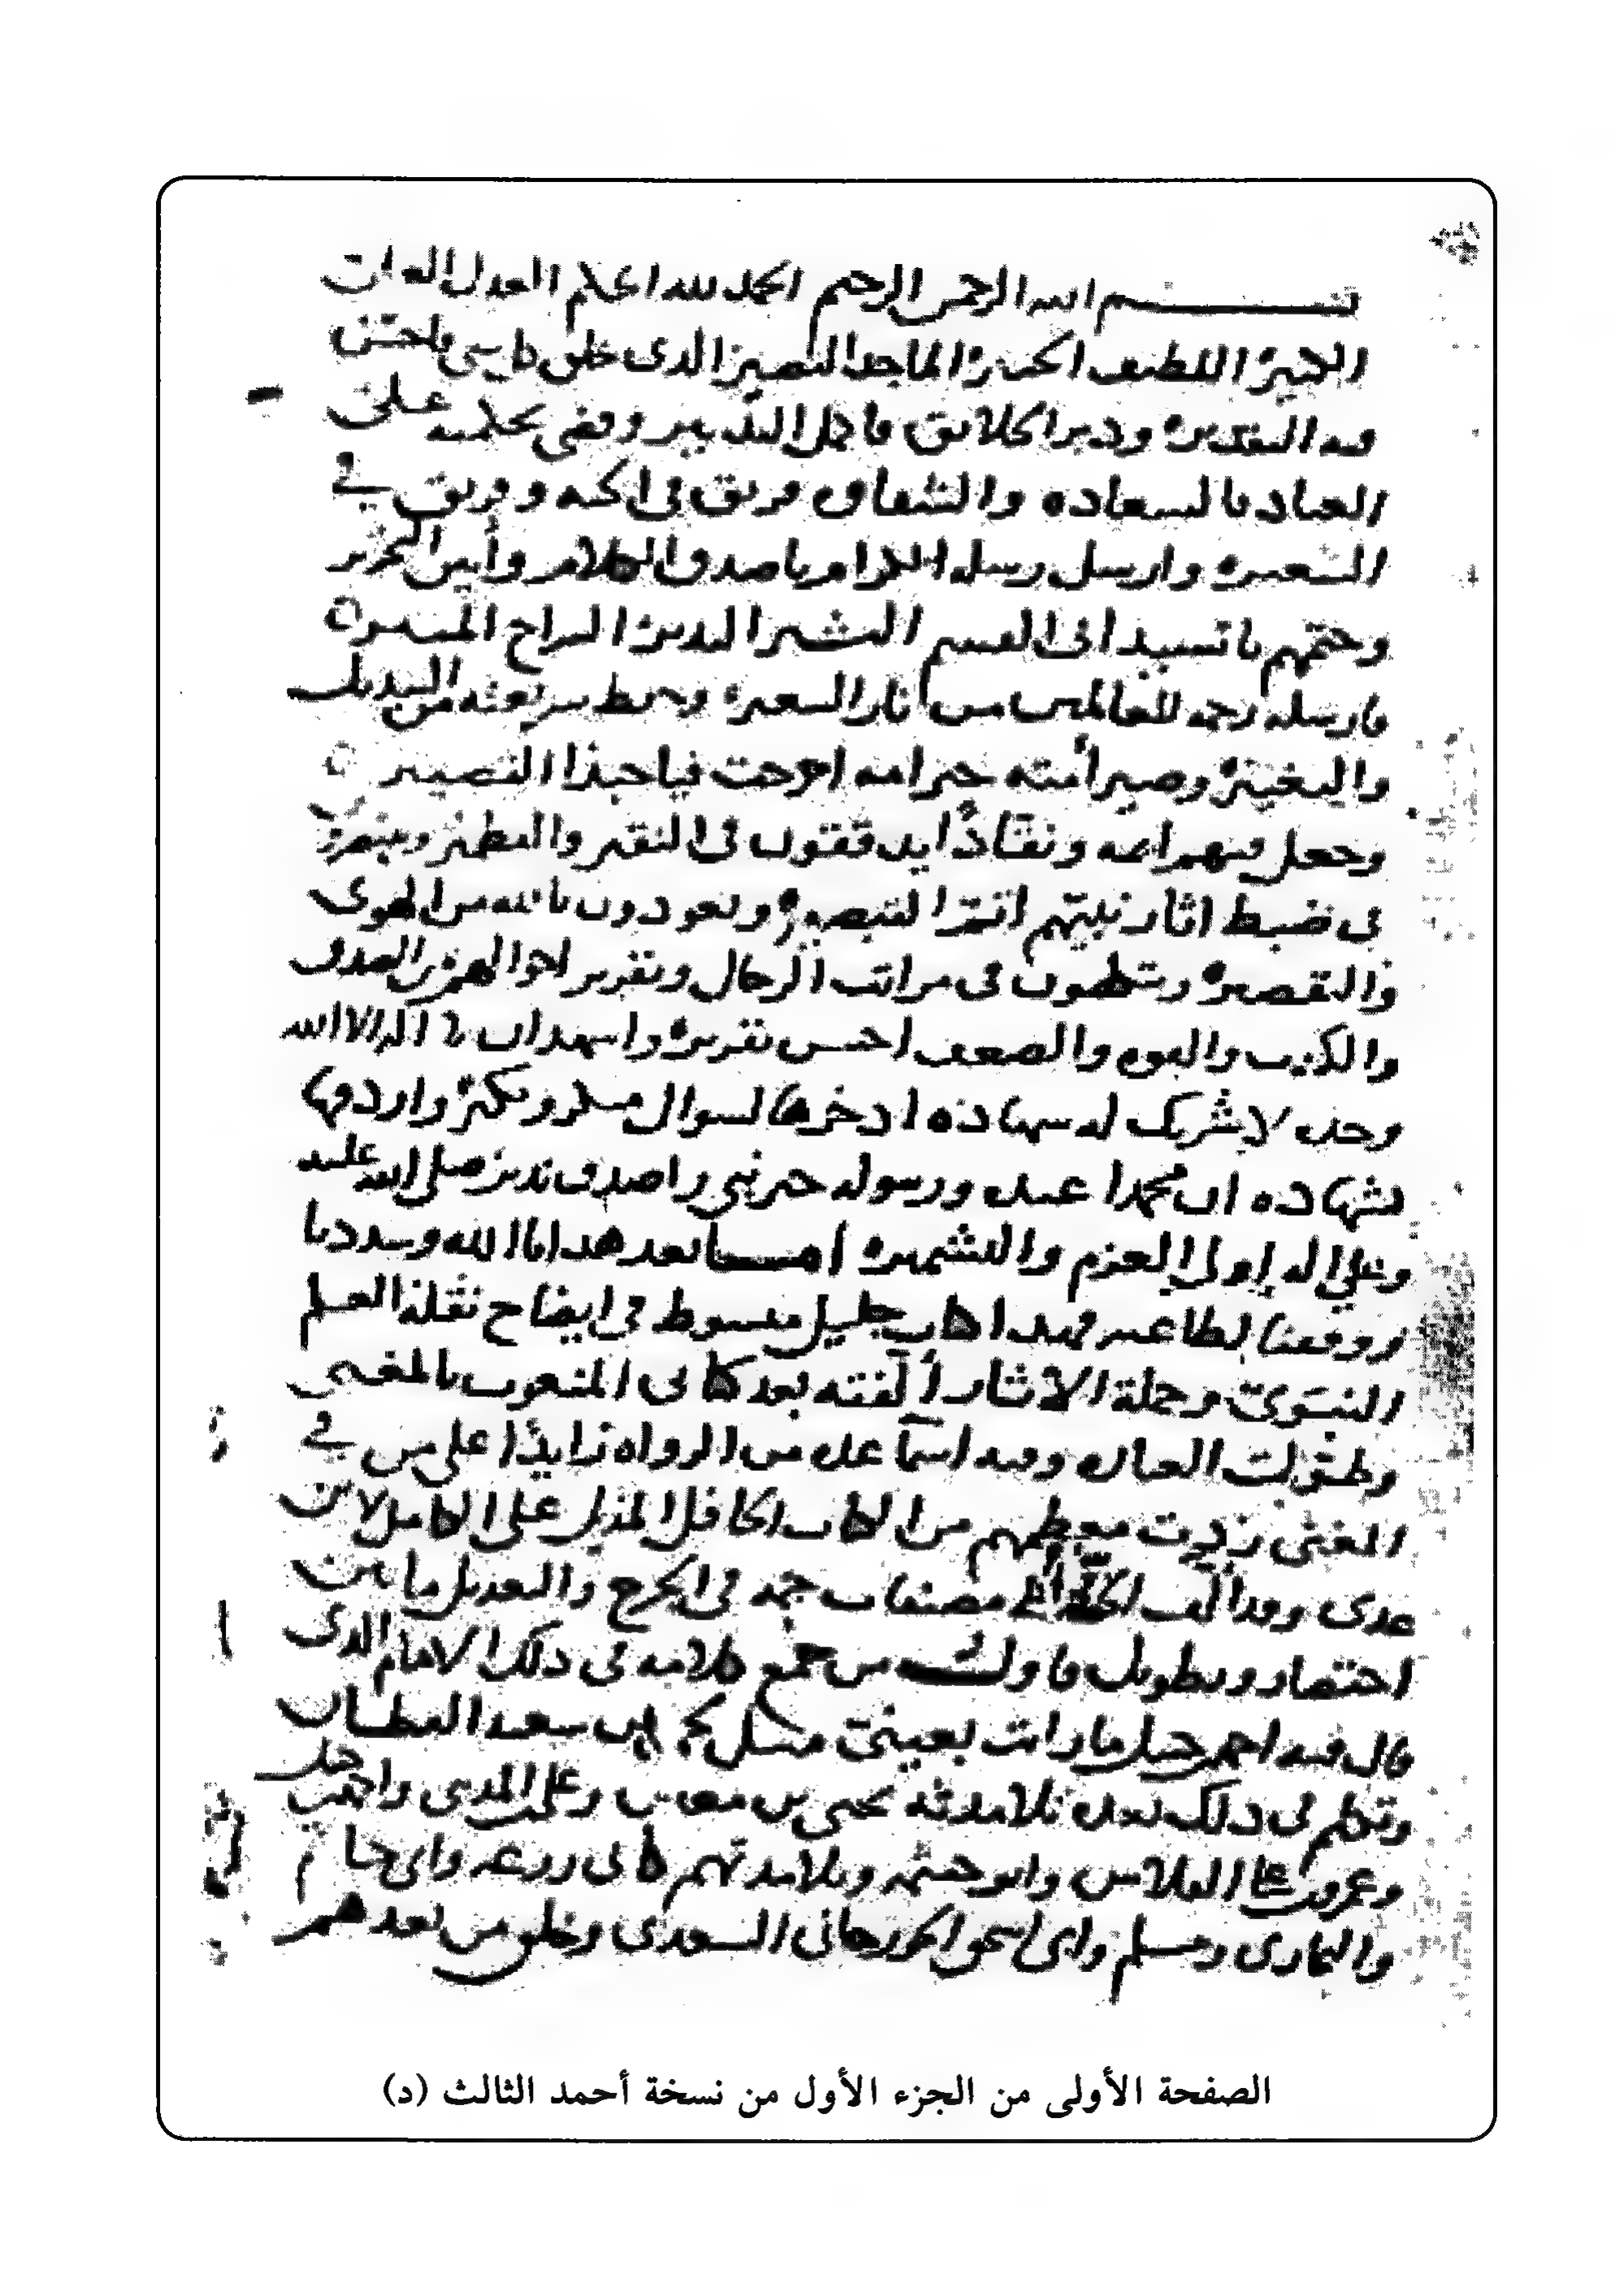 بسم الله الرحمن الرحيم الحمد لله الحكم العدل العلي
الكبير اللطيف الخبير الماجد البصير الذي خلق كل شي فاحسن
فيه التقدير ودبر الخلائق فاكمل التدبير وقضى بحكمته على
العباد بالسعادة والشقاوة فريق في الجنة وفريق في
السعير وارسل رسله الكرام باصدق الكلام وأبين التحرير
وختمهم بالسيد ابي القاسم البشير النذير السراج المنير
فارسله رحمة للعالمين من نار السعير وحفظ شريعته من التبديل
والتغيير وصير أمته خير امة اخرجت فيا حبذا التصيير
وجعل فيهم ايمة ونقادا يدققون في النقير والقطمير ويتبصرون
في ضبط اثار نبيهم اتم التبصير ويتعوذون بالله من الهوى
والتقصير ويتكلمون في مراتب الرجال وتقرير احوالهم من الصدق
والكذب والقوة والضعف احسن تقرير واشهد ان لا اله الا الله
وحده لا شريك له شهادة ادخرها لسوال منكر ونكير واردفها
بشهادة ان محمدا عبده ورسوله خير نبي واصدق نذير صلى الله عليه
وعلى اله اولي العزم والتشمير اما بعد هدانا الله وسددنا
ووفقنا لطاعته فهذا كتاب جليل مبسوط في ايضاح نقلة العلم
النبوي وحملة الاثار ألفته بعد كتابي المنعوت بالمغني
وطولت العبارة وفيه اسما عدة من الرواة زايدا على من في
المغني زدت معظمهم من الكتاب الحافل المذيل على الكامل لابن
عدي وقد ألف الحفاظ مصنفات جمة في الجرح والتعديل ما بين
اختصار وتطويل فاول من جمع كلامه في ذلك الامام الذي
قال فيه احمد بن حنبل ما رايت بعيني مثل يحيى بن سعيد القطان
وتكلم في ذلك بعده تلامذته يحيى بن معين وعلي بن المديني واحمد بن حنبل
وعمرو بن علي الفلاس وابو خيثمة وتلامذتهم كابي زرعة وابي حاتم
والبخاري ومسلم وابي اسحق الجوزجاني السعدي وخلق من بعدهم
الصفحة الأولى من الجزء الأول من نسخة أحمد الثالث (د)